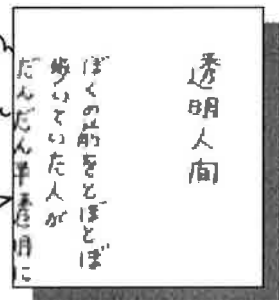 透明人間
ぼくの前をとぼとぼ
歩いていた人が
だんだん半透明に